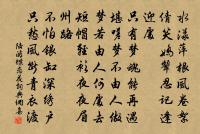 水漾萍根風卷絮
倩笑嬌顰忍記逢
迎處
只有夢魂能再遇
堪嗟夢不由人做
夢若由人何處去
短帽輕衫夜夜眉
州路
不怕銀缸深繡戶
只愁風斷青衣渡
陸游蝶戀花詞典網集